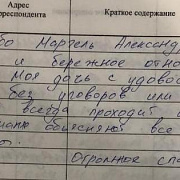 Адрес
рреспондента
Краткое содержание
бо Маргель Александ
и бережное отно
Моя дочь с удово
без уговоров или
всегда проходит
объясняют все
Огромное спа